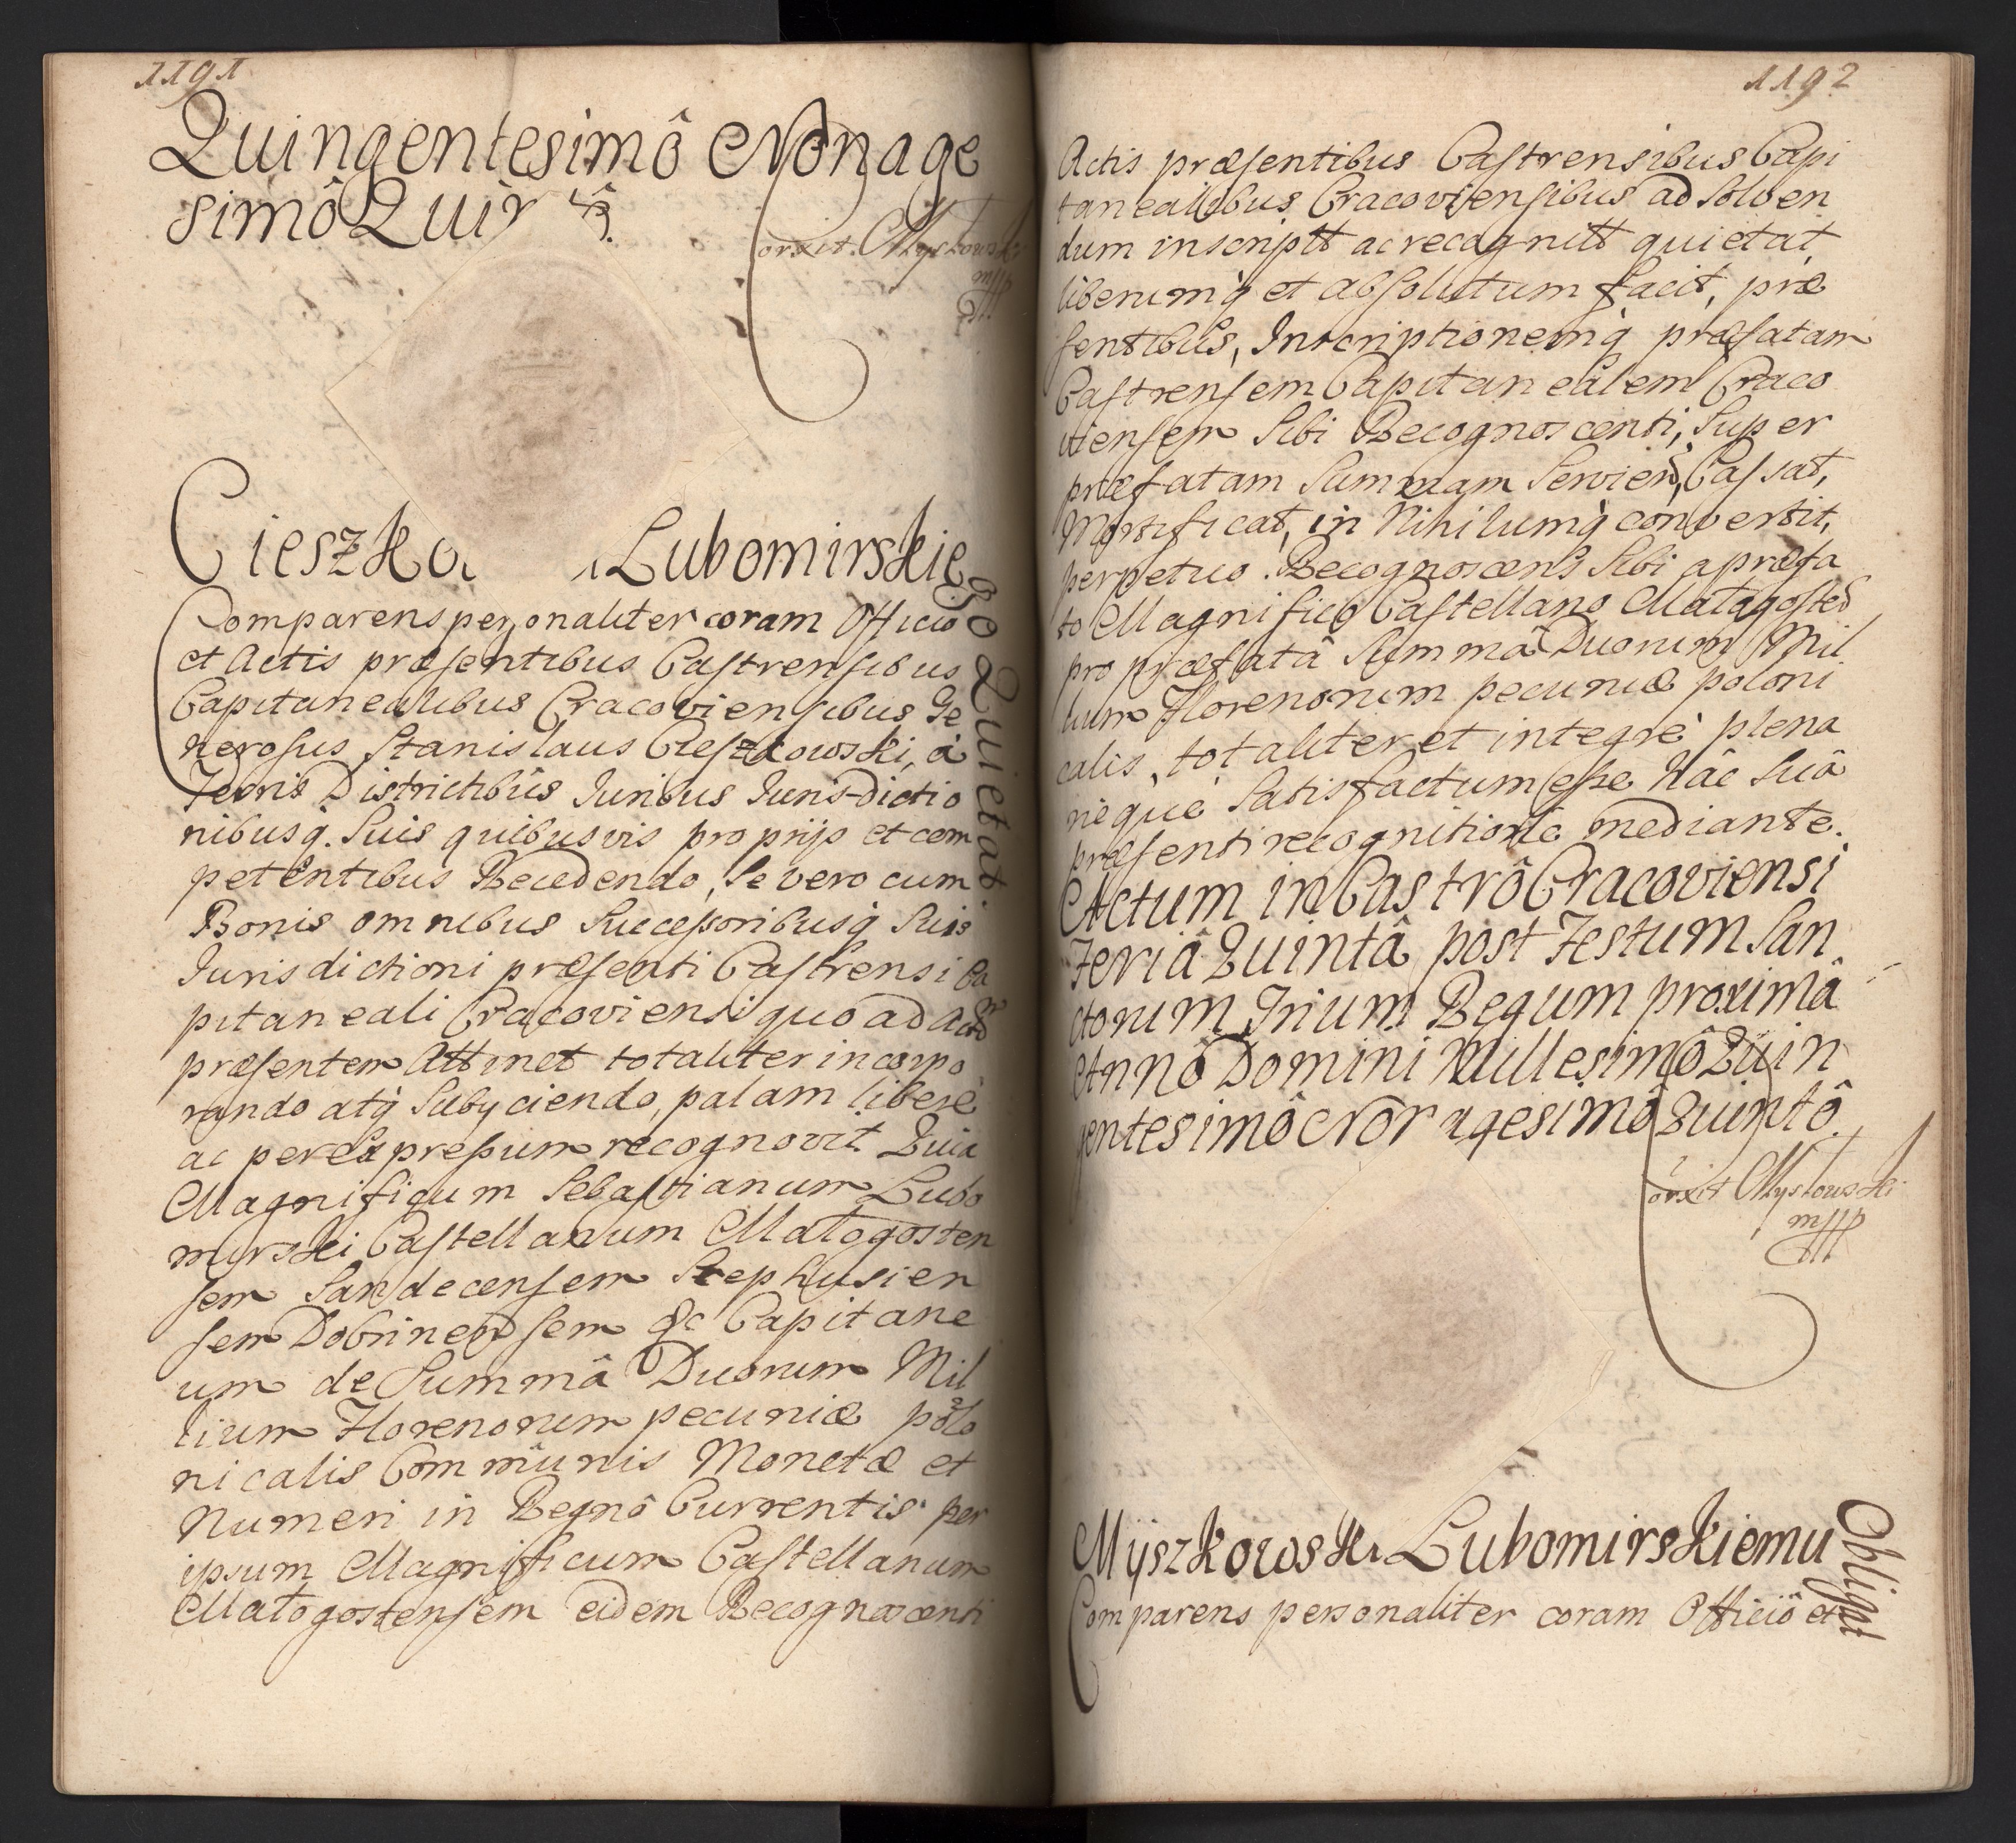 1191
Quingentesimô Nonage
simô Quin
orxit. Myslowski
mpp
Cieszko Lubomirskiego Quietat
Comparens personaliter coram Officio
et Actis præsentibus Castrensibus
Capitanealibus Cracoviensibus Ge
nerosus Stanislaus Cieszkowski, à
Terris Districtibûs Juribus Jurisdictio
nibusq. Suis quibusvis proprijs et com
petentibus Recedendo, Se vero cum
Bonis omnibus Successoribusq Suis
Jurisdictioni præsenti Castrensi Ca
pitaneali Cracoviensi quo ad Actum
præsentem Attinet totaliter incorpo
rando atq Subyciendo, palam liberè
ac per expressum recognovit. Quia
Magnificum Sebastianum Lubo
mirski Castellanum Małogosten
sem Sandecensem Scephusien
sem Dobrinensem &c Capitane
um de Summâ Duorum Mil
lium Florenorum pecuniæ polo
nicalis Communis Monetæ et
Numeri in Regnô Currentis per
ipsum Magnificum Castellanum
Małogostensem eidem Recognoscenti
1192
Actis præsentibus Castrensibus Capi
tanealibus Cracoviensibus ad Solven
dum inscriptt ac recognitt quietat,
liberumq et absolutum facit, præ
sentibus, Inscriptionemq præfatam
Castrensem Capitanealem Craco
viensem Sibi Recognoscenti, Super
præfatam Summam Servien, Cassat,
Mortificat, in Nihilumq convertit,
perpetuo. Recognoscens Sibi a præfa
to Magnifico Castellano Małogosten
pro præfatâ Summâ Duorum Mil
lium Florenorum pecuniæ poloni
calis, totaliter et integrè plena
rieque Satisfactum esse hâc Suâ
præsenti recognitione mediante.
Actum in Castrô Cracoviensi
Feriâ Quintâ post Festum San
ctorum Trium Regum proximâ
Annô Domini Millesimô Quin
gentesimô Nonagesimô Quintô.
orxit Myslowski
mpp
Mÿszkowski Lubomirskiemu Obligat
Comparens personaliter coram Officiô et